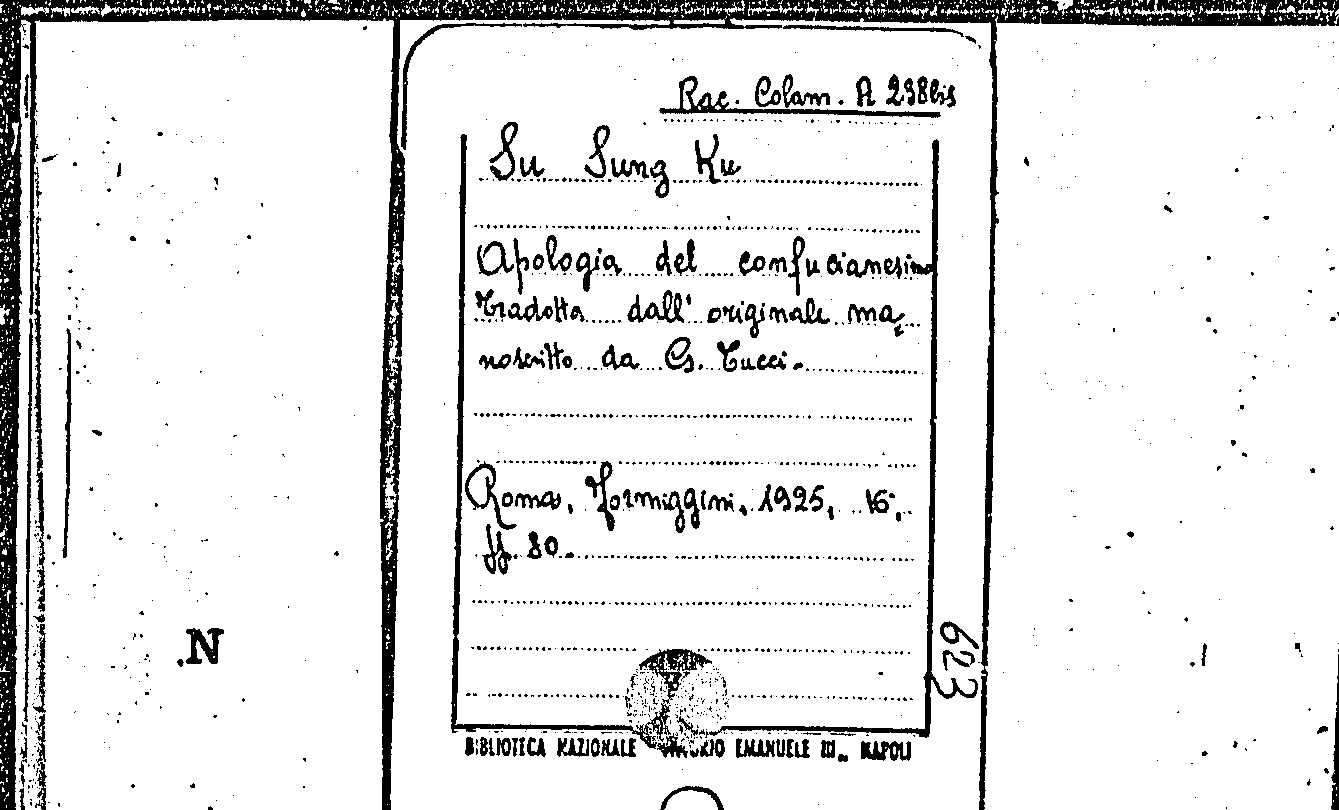 Rac. Colam. A 238bis
Su Sung Ku
Apologia del confucianesimo
tradotta dall' originale ma
noscritto da G. Tucci.
Roma, Formiggini, 1925, 16°,
ff. 80.
623
.N
BIBLIOTECA NAZIONALE EMANUELE III„ NAPOLI